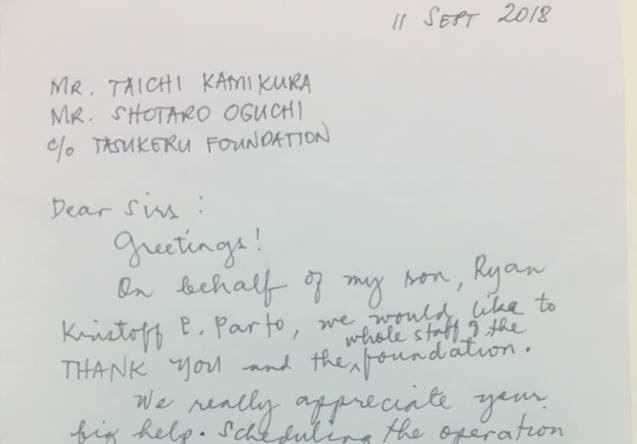 11 SEPT 2018
MR. TAICHI KAMIKURA
MR. SHOTARO OGUCHI
c/o TASUKERU FOUNDATION
Dear Sirs :
Greetings!
On behalf of my son, Ryan
Kinstoff P. Parto, we would like to
whole staff of the
THANK YOU and the ^ foundation.
We really appreciate your
big help. Scheduling the operation